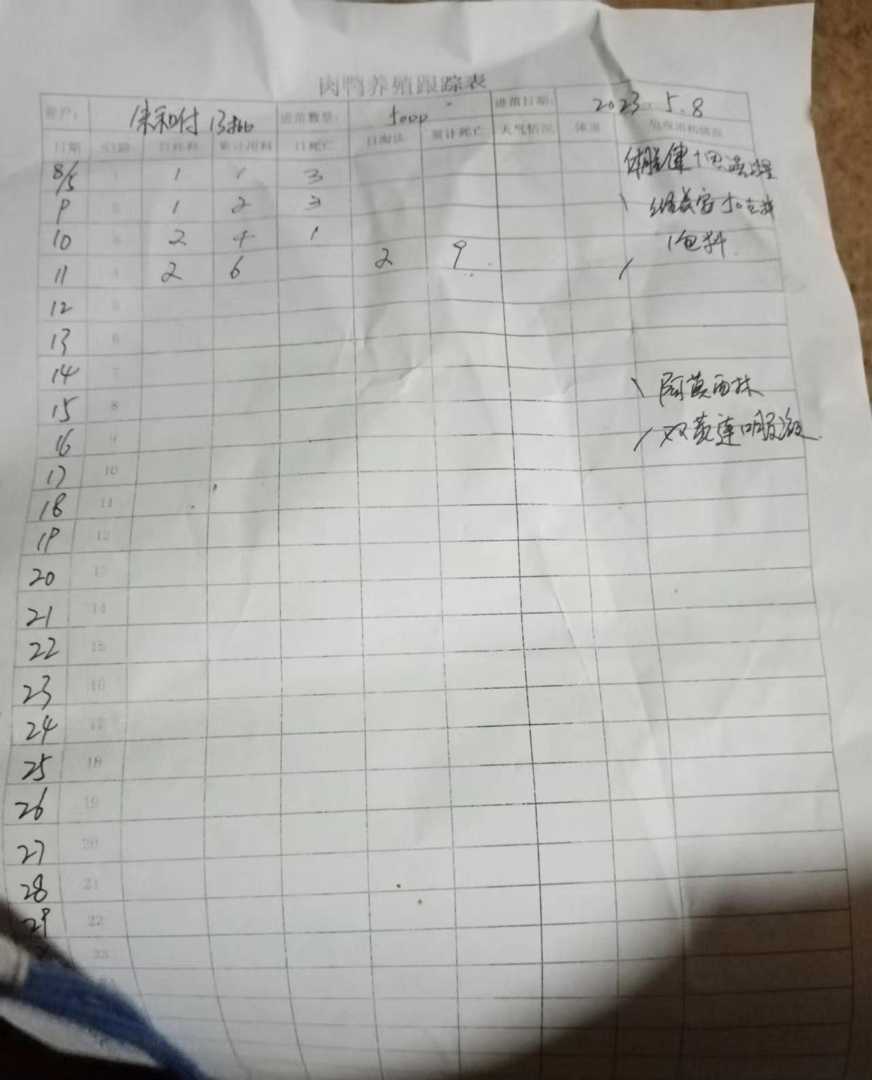 肉鸭养殖跟踪表
客户: 进苗数量: 5000 进苗日期: 2023 5.8
日期 日龄 日耗料 累计用料 日死亡 日淘汰 累计死亡 天气情况 体重 免疫用药情况
8/5 1 1 1 3
9 2 1 2 3
10 3 2 4 1 1包料
11 4 2 6 2 9
12 5
13 6
14 7 阿莫西林
15 8
16 9 双黄连口服液
17 10
18 11
19 12
20 13
21 14
22 15
23 16
24 17
25 18
26 19
27 20
28 21
29 22
23